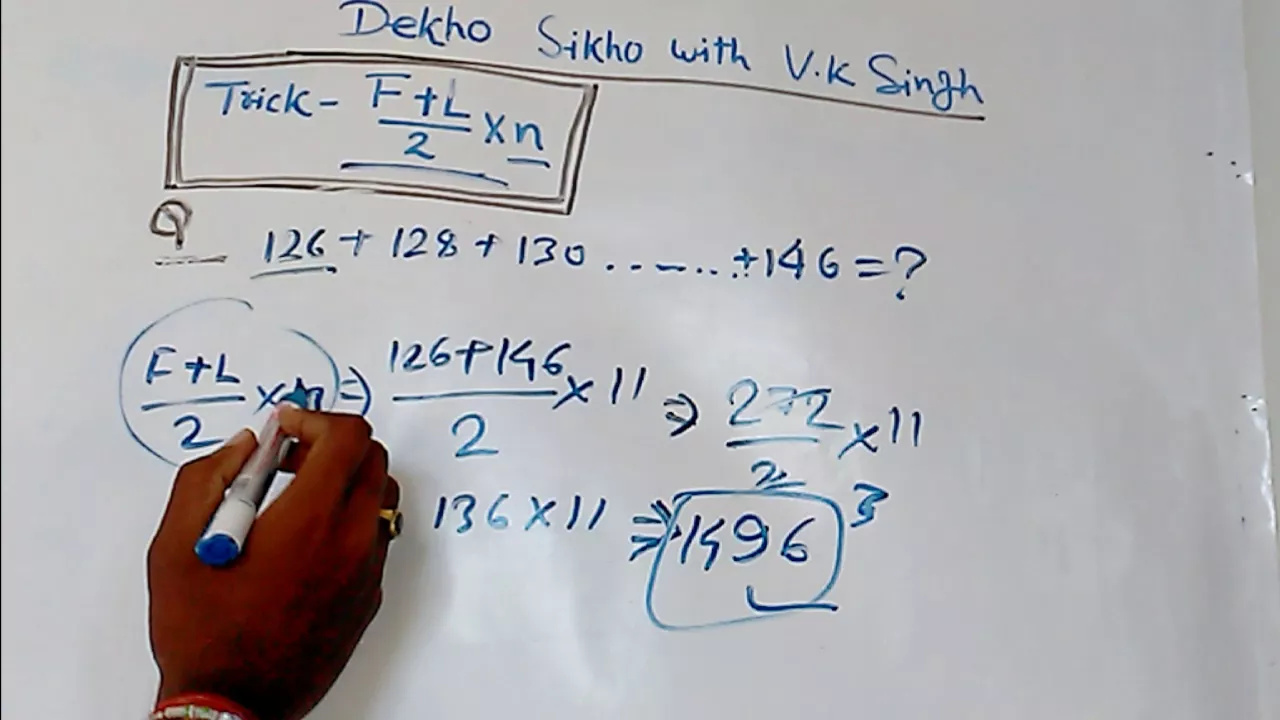 Dekho Sikho with V.K Singh
Trick - F+L/2 × n
Q
126 + 128 + 130 ....... + 146 = ?
F+L/2 × n ⇒ 126+146/2 × 11 ⇒ 272/2 × 11
136 × 11 ⇒ 1496
3